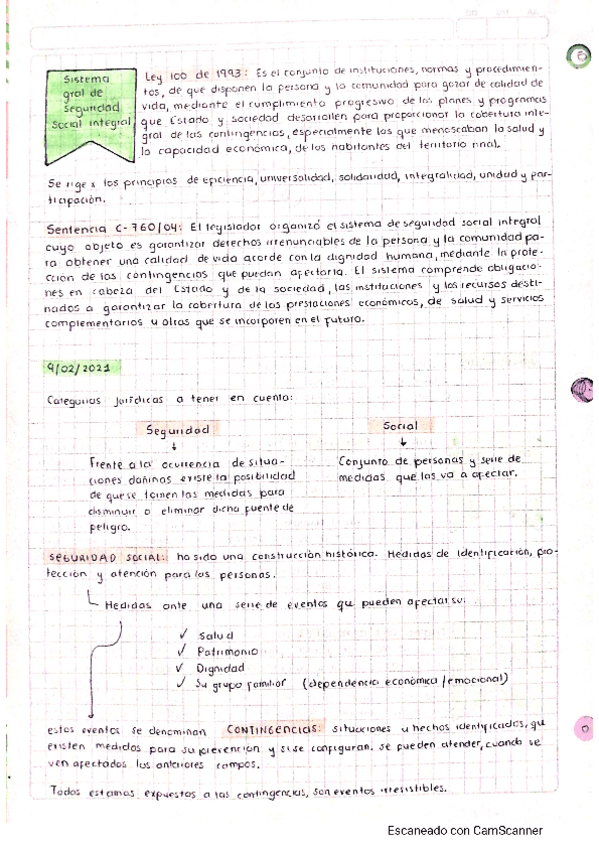 Sistema
gral de
Seguridad
Social integral
Ley 100 de 1993: Es el conjunto de instituciones, normas y procedimien-
tos, de que disponen la persona y la comunidad para gozar de calidad de
vida, mediante el cumplimiento progresivo de los planes y programas
que Estado y sociedad desarrollen para proporcionar la cobertura inte-
gral de las contingencias, especialmente las que menoscaban la salud y
la capacidad económica, de los habitantes del territorio nnal.
Se rige x los principios de eficiencia, universalidad, solidaridad, integralidad, unidad y par-
ticipación.
Sentencia C-760/04: El legislador organizó el sistema de seguridad social integral
cuyo objeto es garantizar derechos irrenunciables de la persona y la comunidad pa-
ra obtener una calidad de vida acorde con la dignidad humana, mediante la prote-
cción de las contingencias que puedan afectarla. El sistema comprende obligacio-
nes en cabeza del Estado y de la sociedad, las instituciones y los recursos desti-
nados a garantizar la cobertura de las prestaciones económicas, de salud y servicios
complementarios u otras que se incorporen en el futuro.
9/02/2021
Categorías jurídicas a tener en cuenta:
Seguridad
Frente a la ocurrencia de situa-
ciones dañinas existe la posibilidad
de que se tomen las medidas para
disminuir o eliminar dicha fuente de
peligro.
Social
Conjunto de personas y serie de
medidas que las va a afectar.
SEGURIDAD SOCIAL: ha sido una construcción histórica. Medidas de identificación, pro-
tección y atención para las personas.
Medidas ante una serie de eventos que pueden afectar su:
✓ Salud
✓ Patrimonio
✓ Dignidad
✓ Su grupo familiar (dependencia económica/emocional)
estos eventos se denominan CONTINGENCIAS: situaciones u hechos identificados, que
existen medidas para su prevención y si se configuran. se pueden atender, cuando se
ven afectados los anteriores campos.
Todos estamos expuestos a las contingencias, son eventos irresistibles.
Escaneado con CamScanner